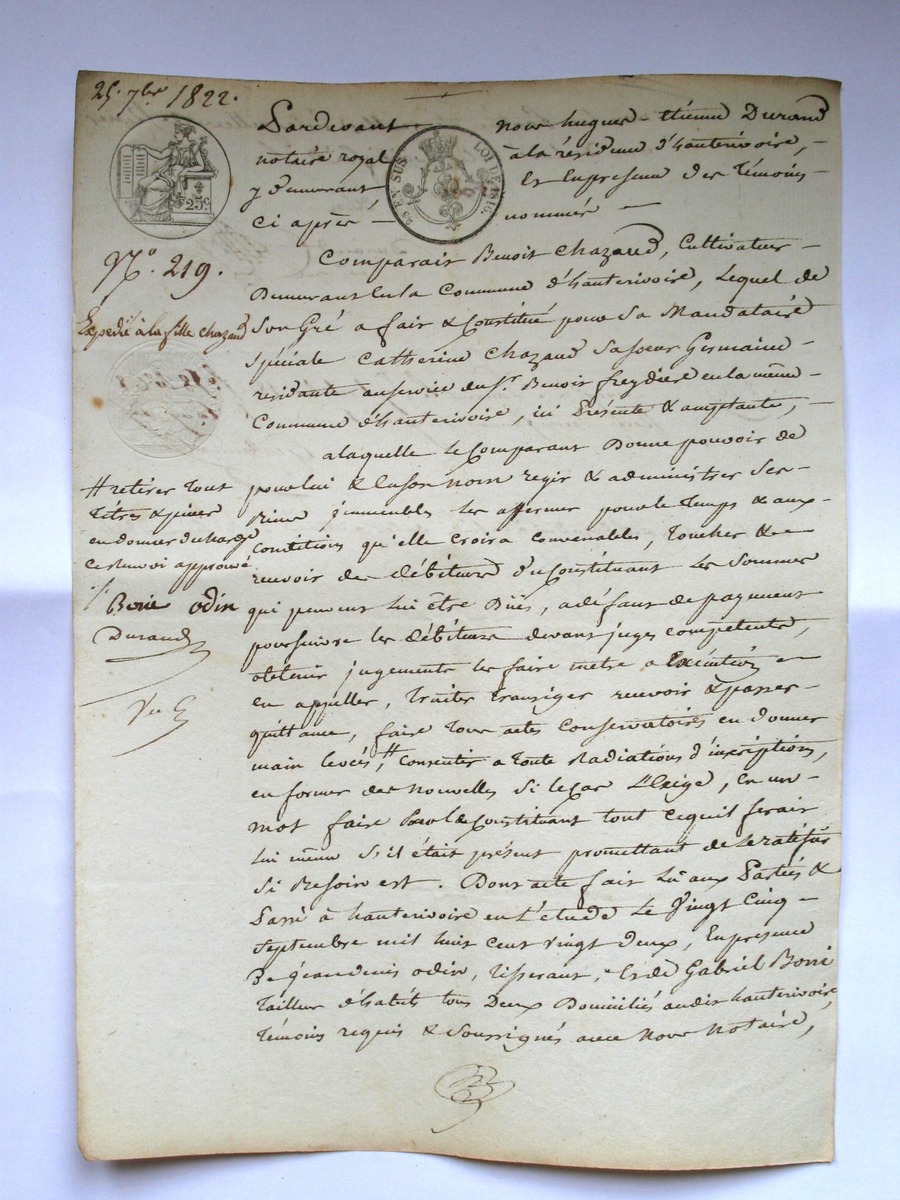 25. 7bre 1822.
25 c.
5 EN SUS LOI DE 1816.
Pardevant nous hugues-étienne Durand
notaire royal à la résidence d'hauterivoire,
y demeurant Et En presence des Témoins
ci après nommés
N°. 219.
Expedié à la fille chazaud
Comparait Benoit Chazaud, Cultivateur
Demeurant En la Commune d'hauterivoire, Lequel de
Son Gré a fait & Constitué pour Sa Mandataire
Spéciale Catherine Chazaud Sa soeur Germaine
residante au service du Sr. Benoit freydiere en la même
Commune d'hauterivoire, ici Présente & acceptante,
a laquelle le Comparant Donne pouvoir de
pour lui & En son nom regir & administrer Ses
Biens immeubles les affermer pour le Temps & aux
Conditions qu'elle croira convenables, Toucher &
recevoir des débiteurs du Constituant les Sommes
qui peuvent lui être Dües, a défaut de payement
poursuivre les débiteurs devant juges competents,
obtenir jugements les faire metre a Exécution
en appeller, Traiter transiger recevoir & passer
quittance, faire tous actes Conservatoires en donner
main levées, # Consentir a toute Radiations d'inscriptions,
en former des nouvelles Si le cas L'Exige, En un
mot faire Pour le Constituant tout ce qu'il ferait
lui même s'il était présent promettant de le ratifier
Si Besoin est. Dont acte fait Lu aux Parties &
Passé à hauterivoire en L'étude Le Vingt Cinq
Septembre mil huit cent vingt deux, En presence
De jean denis odin, Tisserant, Et de Gabriel Borie
Tailleur d'habits tous Deux Domiciliés audit hauterivoire,
Témoins requis & Soussignés avec Nous Notaire,
# retirer tout
Titres & pieces
en donner decharge
ce renvoi approuvé
Borie odin
Durand